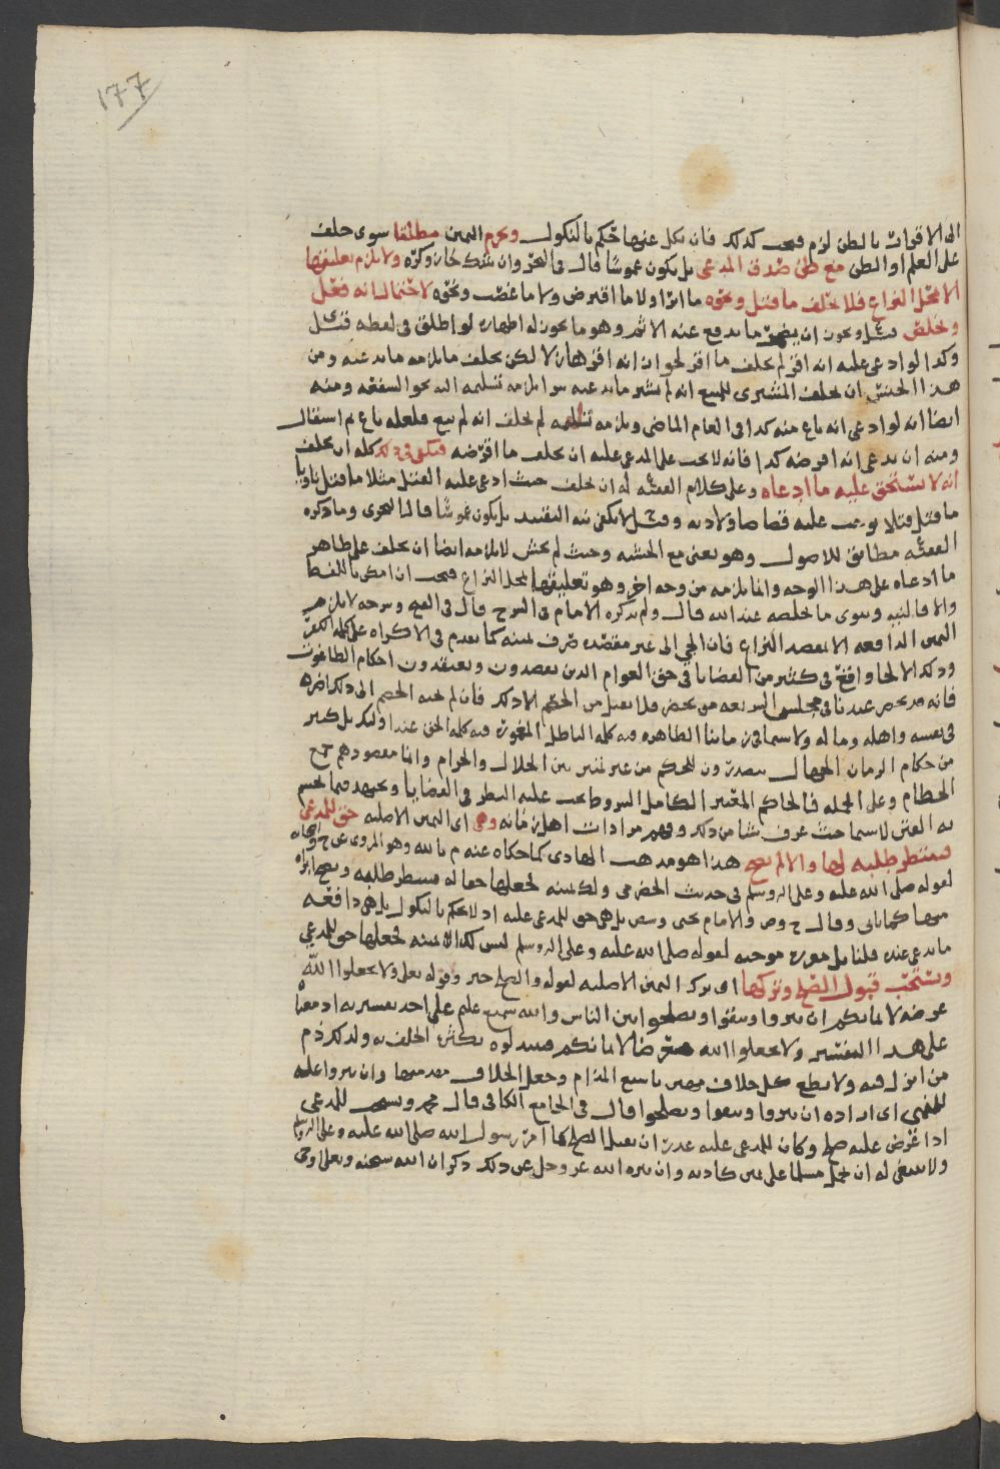 ١٧٧
الى الاقوات بالظن لزم فيجب كذلك فان نكل عنها حكم بالنكول ويحرم اليمين مطلقا سوى حلف
على العلم او الظن مع ظن صدق المدعي بل يكون غموسا قال في البحر وان شك جاز وكره ولا يلزم تعليقها
الا بمحل النزاع فلا يحلف ما قتل ونحوه ما ابرا ولا ما اقترض ولا ما غصب ونحوه لاحتمال انه فعل
وتخلص قيل ويجوز ان يضمر ما يدفع عنه الاثم وهو ما يجوز له اظهاره لو اطلق في لفظه قيل
وكذا لو ادعى عليه انه اقر لم يحلف ما اقر لجواز انه اقر هازلا لكن يحلف ما يلزمه ما يدعيه ومن
هذا الجنس ان يحلف المشتري للمبيع انه لم يشتر ما يدعيه سوا يلزمه تسليمه اليه بحق الشفعة ومنه
ايضا انه لو ادعى انه باع منه كذا في العام الماضي ويلزمه تسليمه لم يحلف انه لم يبع فلعله باع ثم استقال
ومنه ان يدعي انه اقرضه كذا فانه لا يجب على المدعى عليه ان يحلف ما اقرضه فيكفي في ذلك كله ان يحلف
انه لا يستحق عليه ما ادعاه وعلى كلام الفقيه له ان يحلف حيث ادعى عليه القتل مثلا ما قتل ناويا
ما قتل قتلا يوجب عليه قصاصا ولا دية وقيل لا يكفي نية التقييد بل يكون غموسا قال البحري وما ذكره
الفقيه مطابق للاصول وهو يعني مع الخشية وحيث لم يخش لا يلزمه ايضا ان يحلف على ظاهر
ما ادعاه على هذا الوجه وانما يلزمه من وجه اخر وهو تعليقها بمحل النزاع فيجب ان امكن باللفظ
والا فالنية وينوي ما خلصه عند الله قال ولم يذكره الامام في الشرح قال في الفتح وشرحه لا يلزم
اليمين الدافعة الا بقصد النزاع فان الجي الى غير مقصده صرف يمينه كما تقدم في الاكراه على كلمة الكفر
وذلك الالجا واقع في كثير من القضايا في حق العوام الذين يقصدون ويعتقدون احكام الطاغوت
فانه قد يحضر عندنا في مجلس الشريعة من يحضر فلا يقبل من الخصم الا ذلك فان لم يجبه الخصم الى ذلك اضره
في نفسه واهله وماله ولا سيما في زماننا الظاهرة فيه كلمة الباطل المغمورة فيه كلمة الحق عند اولئك بل كبير
من حكام الزمان الجهال يتصدرون للحكم من غير تمييز بين الحلال والحرام وانما مقصودهم جمع
الحطام وعلى الجملة فالحاكم المعتبر الكامل الشروط يجب عليه النظر في القضايا ويجتهد فيما يحسم
به الغش لا سيما حيث عرف شيئا من ذلك وفهم مرادات اهل زمانه وهي اي اليمين الاصلية حق للمدعي
فينتظر طلبه لها والا لم يصح هذا هو مذهب الهادي كما حكاه عنه م بالله وهو المروي عن ح
لقوله صلى الله عليه وعلى اله وسلم في حديث الحضرمي ولك يمينه فجعلها حقا له فينتظر طلبه ويصح ابراه
منها كما ياتي وقال والامام يحيى بل هي حق للمدعى عليه اذ لا يحكم بالنكول بل هي دافعة
ما يدعى عنده قلنا بل موجبة لقوله صلى الله عليه وعلى اله وسلم ليس لك الا يمينه فجعلها حق للمدعي
ويستحب قبول الصلح وتركها اي ترك اليمين الاصلية لقوله والصلح خير وقوله تعالى ولا تجعلوا الله
عرضة لايمانكم ان تبروا وتتقوا وتصلحوا بين الناس والله سميع عليم على احد تفسيريه اذ معناه
على هذا التفسير ولا تجعلوا الله معرضا لايمانكم فتبتذلوه بكثرة الحلف به ولذلك ذم
من انزل فيه ولا تطع كل حلاف مهين باشنع المذام وجعل الحلاف مقدمتها وان تبروا علة
للنهي اي ارادة ان تبروا وتتقوا وتصلحوا قال في الجامع الكافي قال محمد ويستحب للمدعي
اذا عرض عليه صلح وكان للمدعى عليه عذر ان يقبل الصلح كما امر رسول الله صلى الله عليه وعلى اله وسلم
ولا ينبغي له ان يحمل مسلما على يمين كاذبة وان ينزه الله عز وجل عن ذلك ذكر ان الله سبحنه وتعالى اوحى